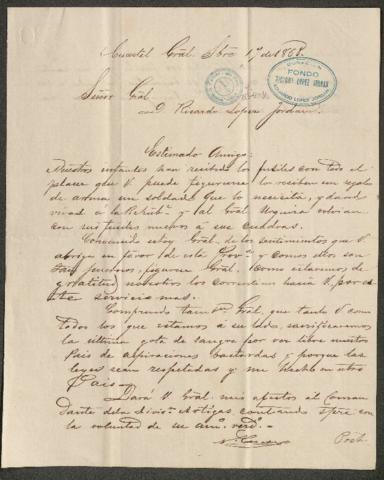 Cuartel Gral. Sbre 17 de 1868.
FONDO
RICARDO LOPEZ JORDAN
Señor Gral
D Ricardo Lopez Jordan.
Estimado Amigo:
Nuestros infantes han recibido los fusiles con todo el
placer que V puede figurarse lo reciban un regalo
de arma un soldado que lo necesita, y dando
vivas á la Repub. y al Gral Urquiza
con sus fusiles
Convencido estoy Gral. de los sentimientos que V
abriga en favor de esta Prov. y como ellos son
figurese Gral. como estaremos de
gratitud nosotros los correntinos hacia V. por es-
te servicio mas.
Comprendo Gral, que tanto V como
todos los que estamos a su lado, sacrificaremos
la ultima gota de sangre por ver libre nuestro
Pais de aspiraciones bastardas y porque las
leyes sean respetadas y
Pais.
Dará V Gral. mis afectos al Coman
dante de la Divisn. Artigas, contando spre con
la voluntad de su amo. verdo.